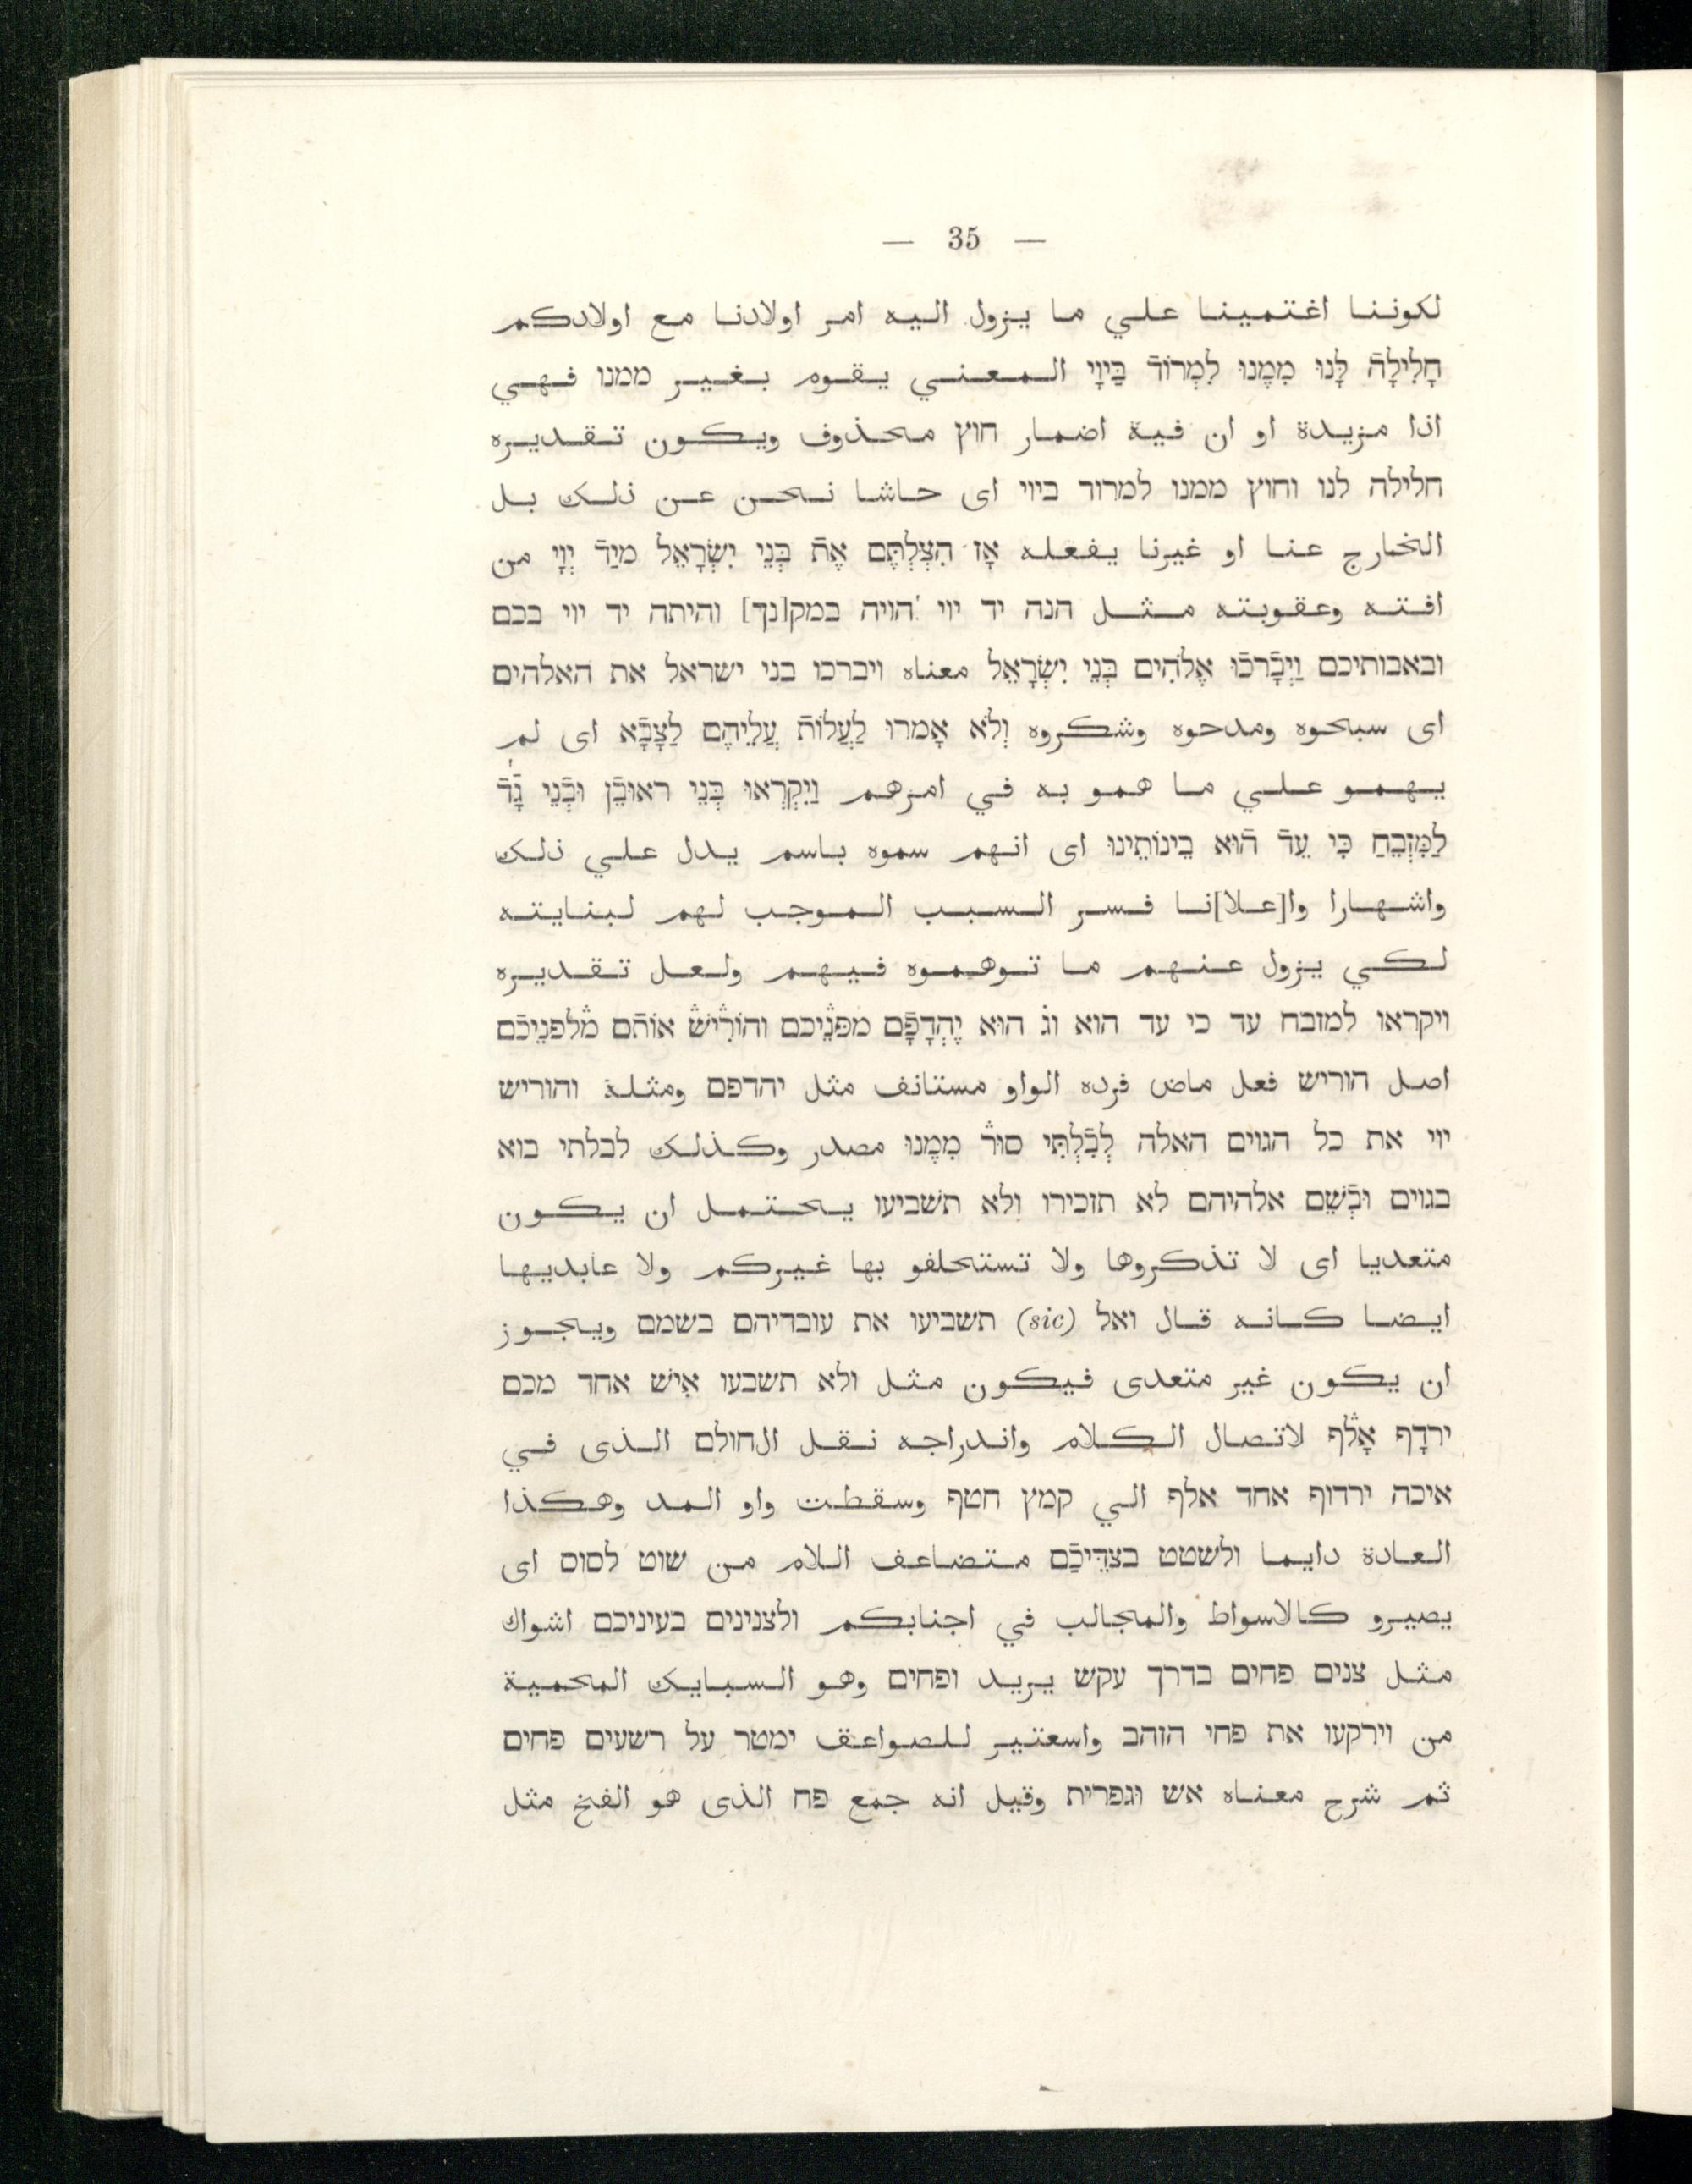 — 35 —
لكوننا اغتمينا علي ما يزول اليه امر اولادنا مع اولادكم
חָלִילָה֩ לָּ֨נוּ מִמֶּ֜נוּ לִמְרוֹד֩ בַּיוָי المعني يقوم بغير ממנו فهي
اذا مزيدة او ان فية اضمار חוץ محذوف ويكون تقديره
חלילה לנו וחוץ ממנו למרוד ביוי اى حاشا نحن عن ذلك بل
الخارج عنا او غيرنا يفعله אָז הִצַּלְתֶּם אֶת בְּנֵי יִשְׂרָאֵל מיַד יְוָי من
افته وعقوبته مثل הנה יד יוי הויה במק[נך] והיתה יד יוי בכם
ובאבותיכם וַיְבָרְכוּ אֱלֹהִים בְּנֵי יִשְׂרָאֵל معناه ויברכו בני ישראל את האלהים
اى سبحوه ومدحوه وشكروه וְלֹא אָמרוּ לַעֲלוֹת עֲלֵיהֶם לַצָּבָא اى لم
يهمو علي ما همو به في امرهم וַיִקְרְאוּ בְּנֵי ראוּבֵן וּבְנֵי גָד
לַמִּזְבֵּחַ כִּי עֵד הוּא בֵינוֹתֵינוּ اى انهم سموه باسم يدل علي ذلك
واشهارا وا[علا]نا فسر السبب الموجب لهم لبنايته
لكي يزول عنهم ما توهموه فيهم ولعل تقديره
ויקראו למזבח עד כי עד הוא וגֹ הוּא יֶהְדָפָם מפּנֵיכם והוֹרִישׁ אוֹתָם מלפנֵיכֶם
اصل הוריש فعل ماض فرده الواو مستانف مثل יהדפם ومثلة והוריש
יוי את כל הגוים האלה לְבִלְתִּי סוּר מִמֶּנוּ مصدر وكذلك לבלתי בוא
בגוים וּבְשֵׁם אלהיהם לא תזכירו ולא תשׁביעו يحتمل ان يكون
متعديا اى لا تذكروها ولا تستحلفو بها غيركم ولا عابديها
ايضا كانه قال ואל (sic) תשביעו את עובדיהם בשמם ويجوز
ان يكون غير متعدى فيكون مثل ולא תשבעו אִישׁ אחד מכם
ירדָף אָלֶף لاتصال الكلام واندراجه نقل الחולם الذى في
איכה ירדוף אחד אלף الي קמץ חטף وسقطت واو المد وهكذا
العادة دايما ולשטט בצִדֵּיכֶם متضاعف اللام من שוט לסוס اى
يصيرو كالاسواط والمجالب في اجنابكم ולצנינים בעיניכם اشواك
مثل צנים פחים בדרך עקש يريد ופחים وهو السبايك المحمية
من וירקעו את פחי הזהב واسعتير للصواعق ימטר על רשעים פחים
ثم شرح معناه אש וגפרית وقيل انه جمع פח الذى هو الفخ مثل